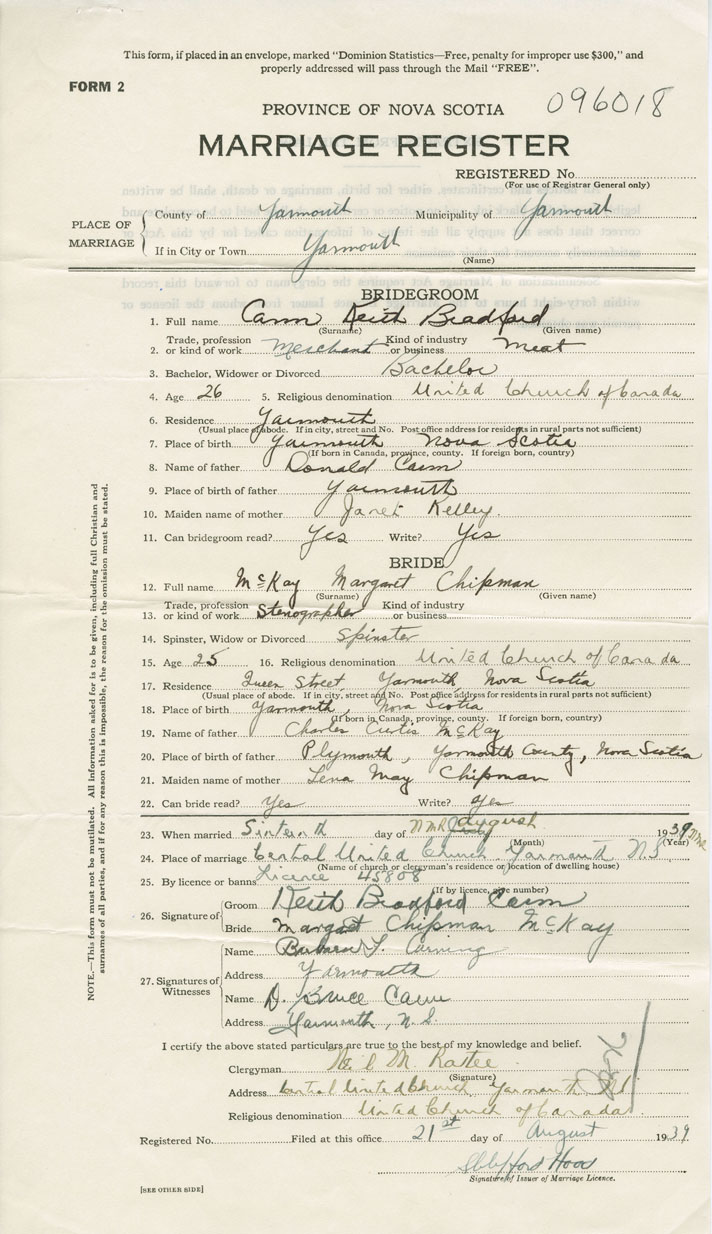 This form, if placed in an envelope, marked "Dominion Statistics—Free, penalty for improper use $300," and
properly addressed will pass through the Mail "FREE".
FORM 2
096018
PROVINCE OF NOVA SCOTIA
MARRIAGE REGISTER
REGISTERED No.
(For use of Registrar General only)
PLACE OF MARRIAGE
County of Yarmouth Municipality of Yarmouth
If in City or Town Yarmouth
(Name)
BRIDEGROOM
1. Full name Cann Keith Bradford
(Surname) (Given name)
2. Trade, profession or kind of work Merchant Kind of industry or business Meat
3. Bachelor, Widower or Divorced Bachelor
4. Age 26 5. Religious denomination United Church of Canada
6. Residence Yarmouth
(Usual place of abode. If in city, street and No. Post office address for residents in rural parts not sufficient)
7. Place of birth Yarmouth Nova Scotia
(If born in Canada, province, county. If foreign born, country)
8. Name of father Donald Cann
9. Place of birth of father Yarmouth
10. Maiden name of mother Janet Kelley.
11. Can bridegroom read? Yes Write? Yes
BRIDE
12. Full name McKay Margaret Chipman
(Surname) (Given name)
13. Trade, profession or kind of work Stenographer Kind of industry or business
14. Spinster, Widow or Divorced Spinster
15. Age 25 16. Religious denomination United Church of Canada
17. Residence Queen Street, Yarmouth, Nova Scotia
(Usual place of abode. If in city, street and No. Post office address for residents in rural parts not sufficient)
18. Place of birth Yarmouth, Nova Scotia
(If born in Canada, province, county. If foreign born, country)
19. Name of father Charles Curtis McKay
20. Place of birth of father Plymouth, Yarmouth County, Nova Scotia
21. Maiden name of mother Lena May Chipman
22. Can bride read? Yes Write? Yes
23. When married Sixteenth day of August 1939
(Month) (Year)
24. Place of marriage Central United Church, Yarmouth N.S.
(Name of church or clergyman's residence or location of dwelling house)
25. By licence or banns Licence 45808
(If by licence, give number)
26. Signature of
Groom Keith Bradford Cann
Bride Margaret Chipman McKay
27. Signatures of Witnesses
Name Corning
Address Yarmouth
Name D. Bruce Cann
Address Yarmouth, N.S.
I certify the above stated particulars are true to the best of my knowledge and belief.
Clergyman Neil M.
(Signature)
Address Central United Church, Yarmouth N.S.
Religious denomination United Church of Canada
Registered No. Filed at this office 21st day of August 1939
Signature of Issuer of Marriage Licence.
[SEE OTHER SIDE]
NOTE.—This form must not be mutilated. All information asked for is to be given, including full Christian and
surnames of all parties, and if for any reason this is impossible, the reason for the omission must be stated.